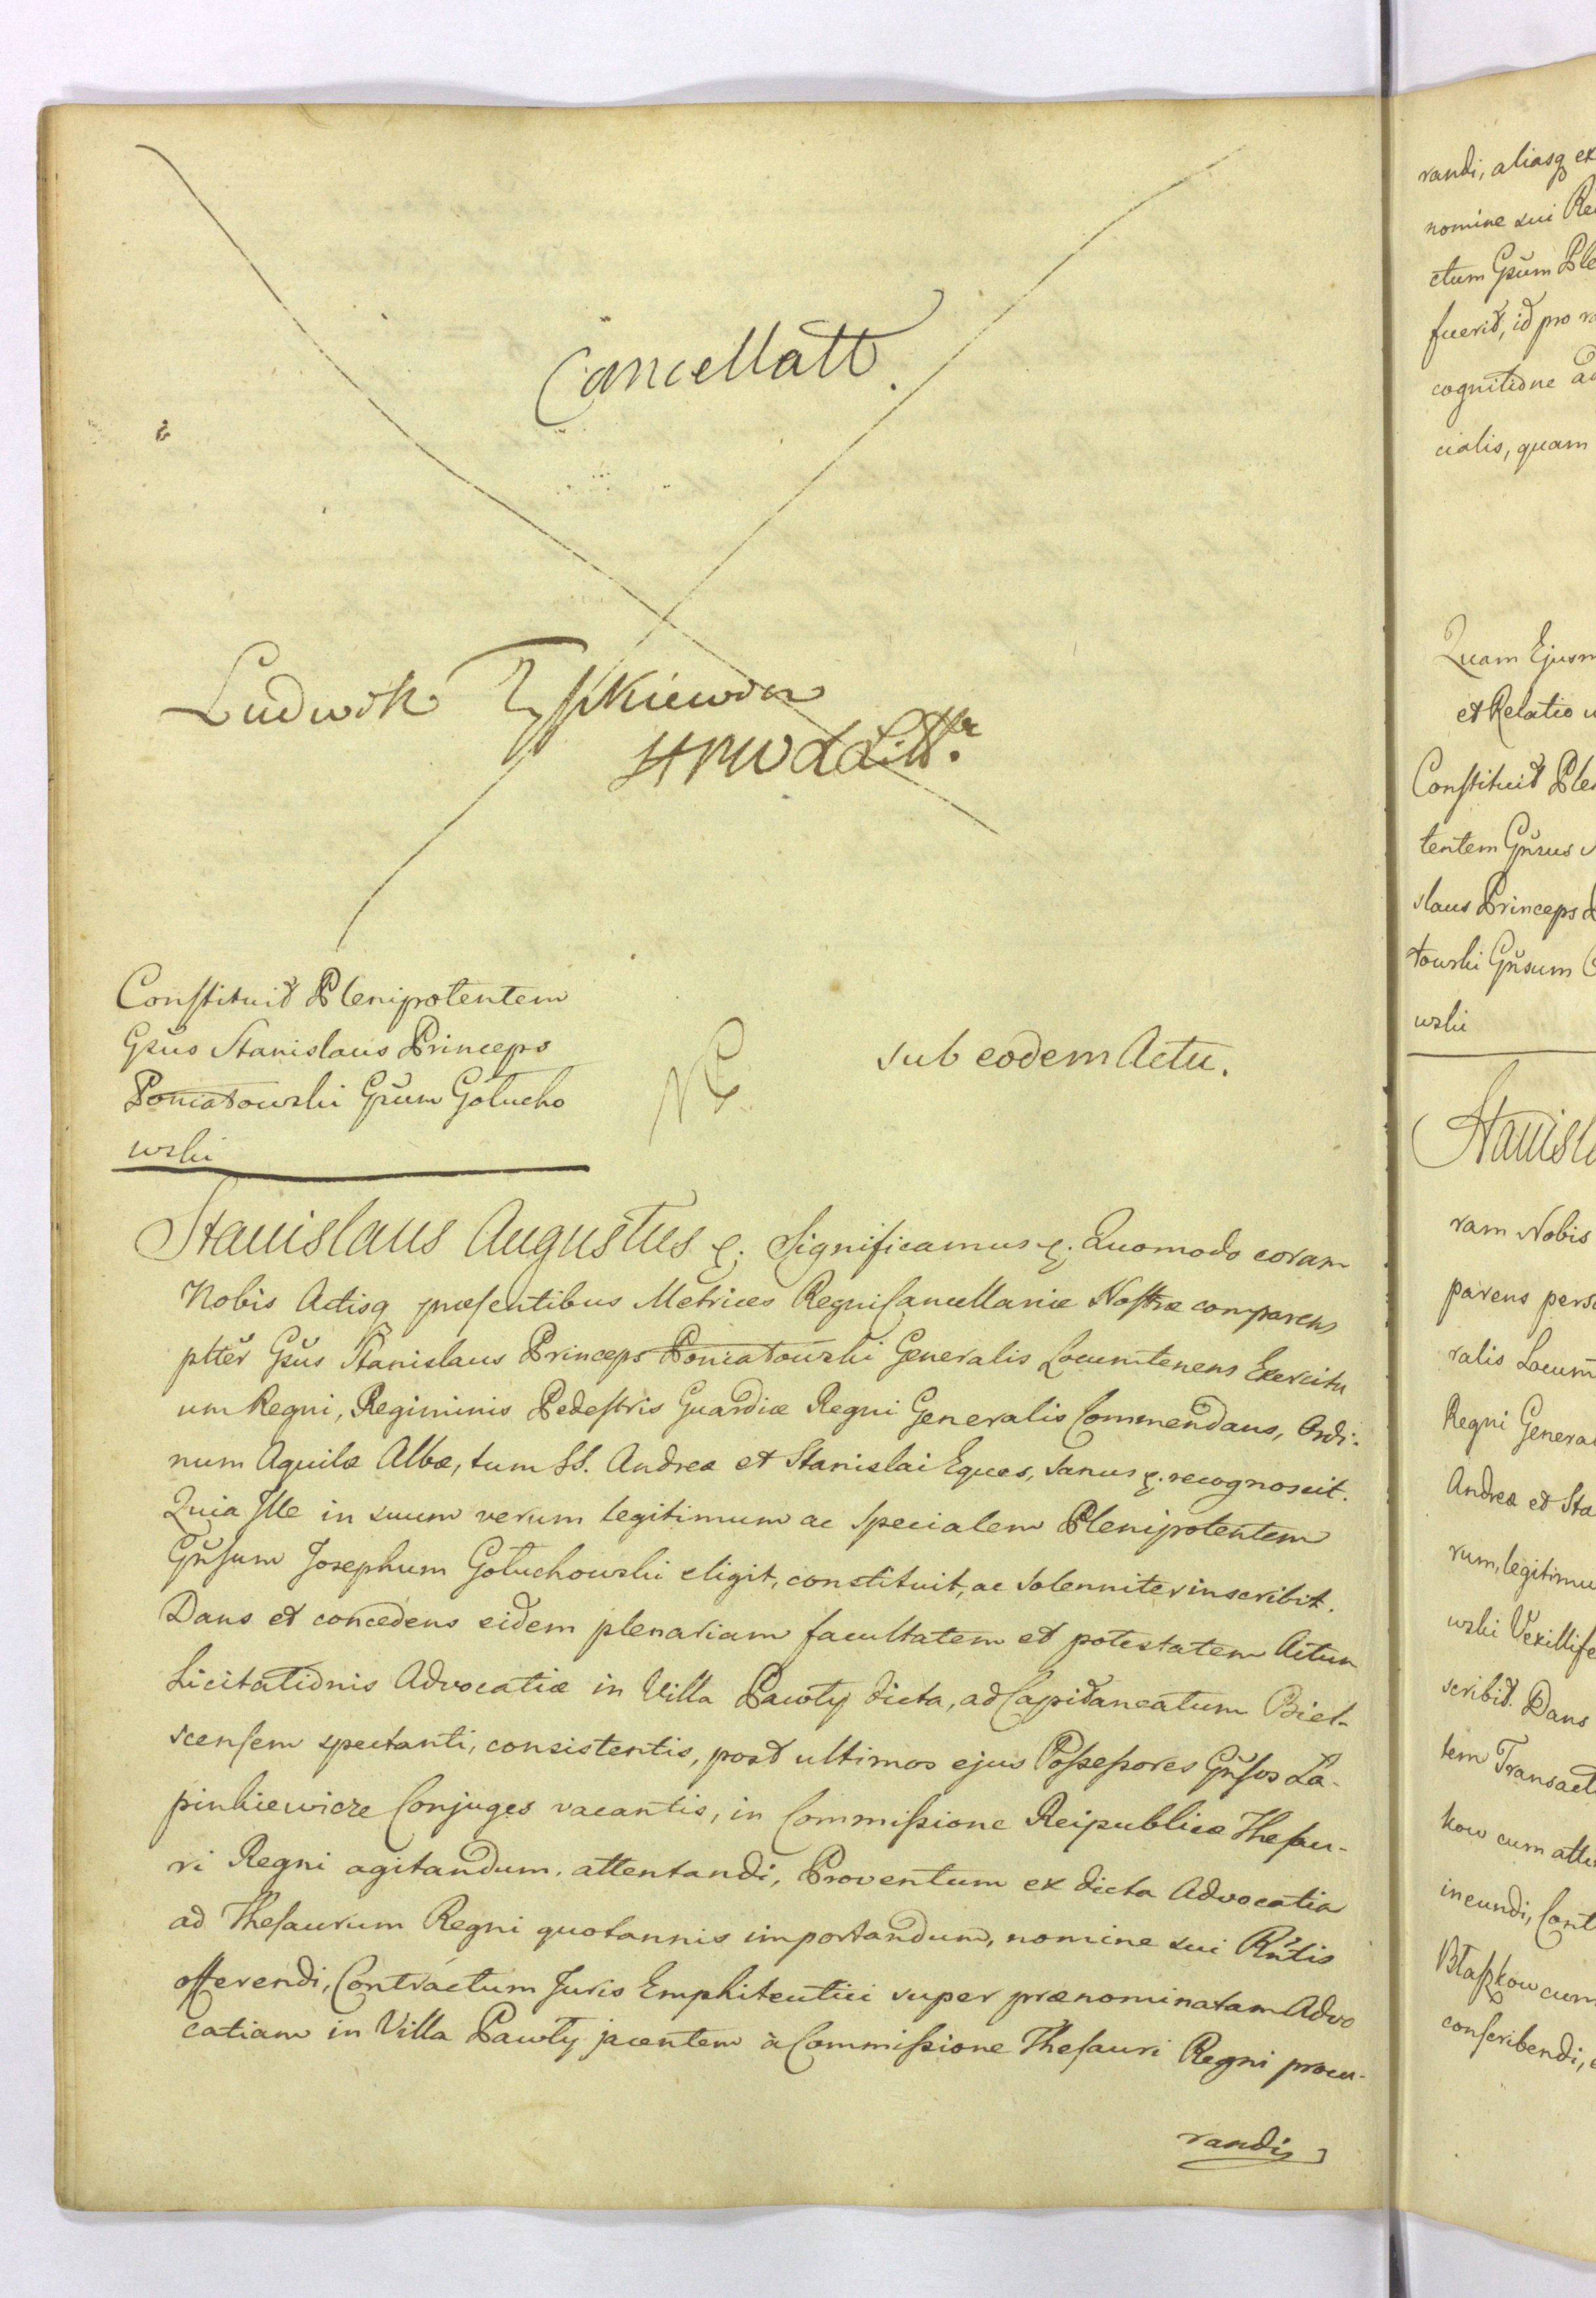 Cancellatt.
Ludwik Tyszkiewicz
HPWXLitt.
Constituit Plenipotentem
Gsus Stanislaus Princeps
Poniatowski Gsum Gołucho
wski
sub eodem Actu.
Stanislaus Augustus &. Significamus &. Quomodo coram
Nobis Actisq præsentibus Metrices Regni Cancellariæ Nostræ comparens
pltter Gsus Stanislaus Princeps Poniatowski Generalis Locumtenens Exercitu
um Regni, Regiminis Pedestris Guardiæ Regni Generalis Commendans, Ordi-
num Aquilæ Albæ, tum SS. Andreæ et Stanislai Eques, Sanus &. recognoscit.
Quia Ille in suum verum legitimum ac Specialem Plenipotentem
Gnsum Josephum Gołuchowski eligit, constituit, ac Solenniter inscribit.
Dans et concedens eidem plenariam facultatem et potestatem Actum
Licitationis Advocatiæ in Villa Pawły dicta, ad Capitaneatum Biel-
scensem spectanti, consistentis, post ultimos ejus Possessores Gnsos Ła-
pinkiewicze Conjuges vacantis, in Commissione Reipublicæ Thesau-
ri Regni agitandum. attentandi, Proventum ex dicta Advocatia
ad Thesaurum Regni quotannis importandum, nomine sui Rntis
offerendi, Contractum Juris Emphiteutici super prænominatam Advo
catiam in Villa Pawły jacentem à Commissione Thesauri Regni procu-
randi,
randi, aliasq ex
nomine sui Re
ctum Gsum Ple
fuerit, id pro ra
cognitione
cialis, quam
Quam Ejusm
et Relatio
Constituit Ple
tentem Gnsus
slaus Princeps
towski Gnsum
wski
Stanisl
ram Nobis
parens pers
ralis Locum
Regni Genera
Andreæ et Sta
rum, legitimu
wski Vexillife
scribit. Dans
tem Transact
kow cum atti
ineundi, Cont
Błaszkow cum
conscribendi,